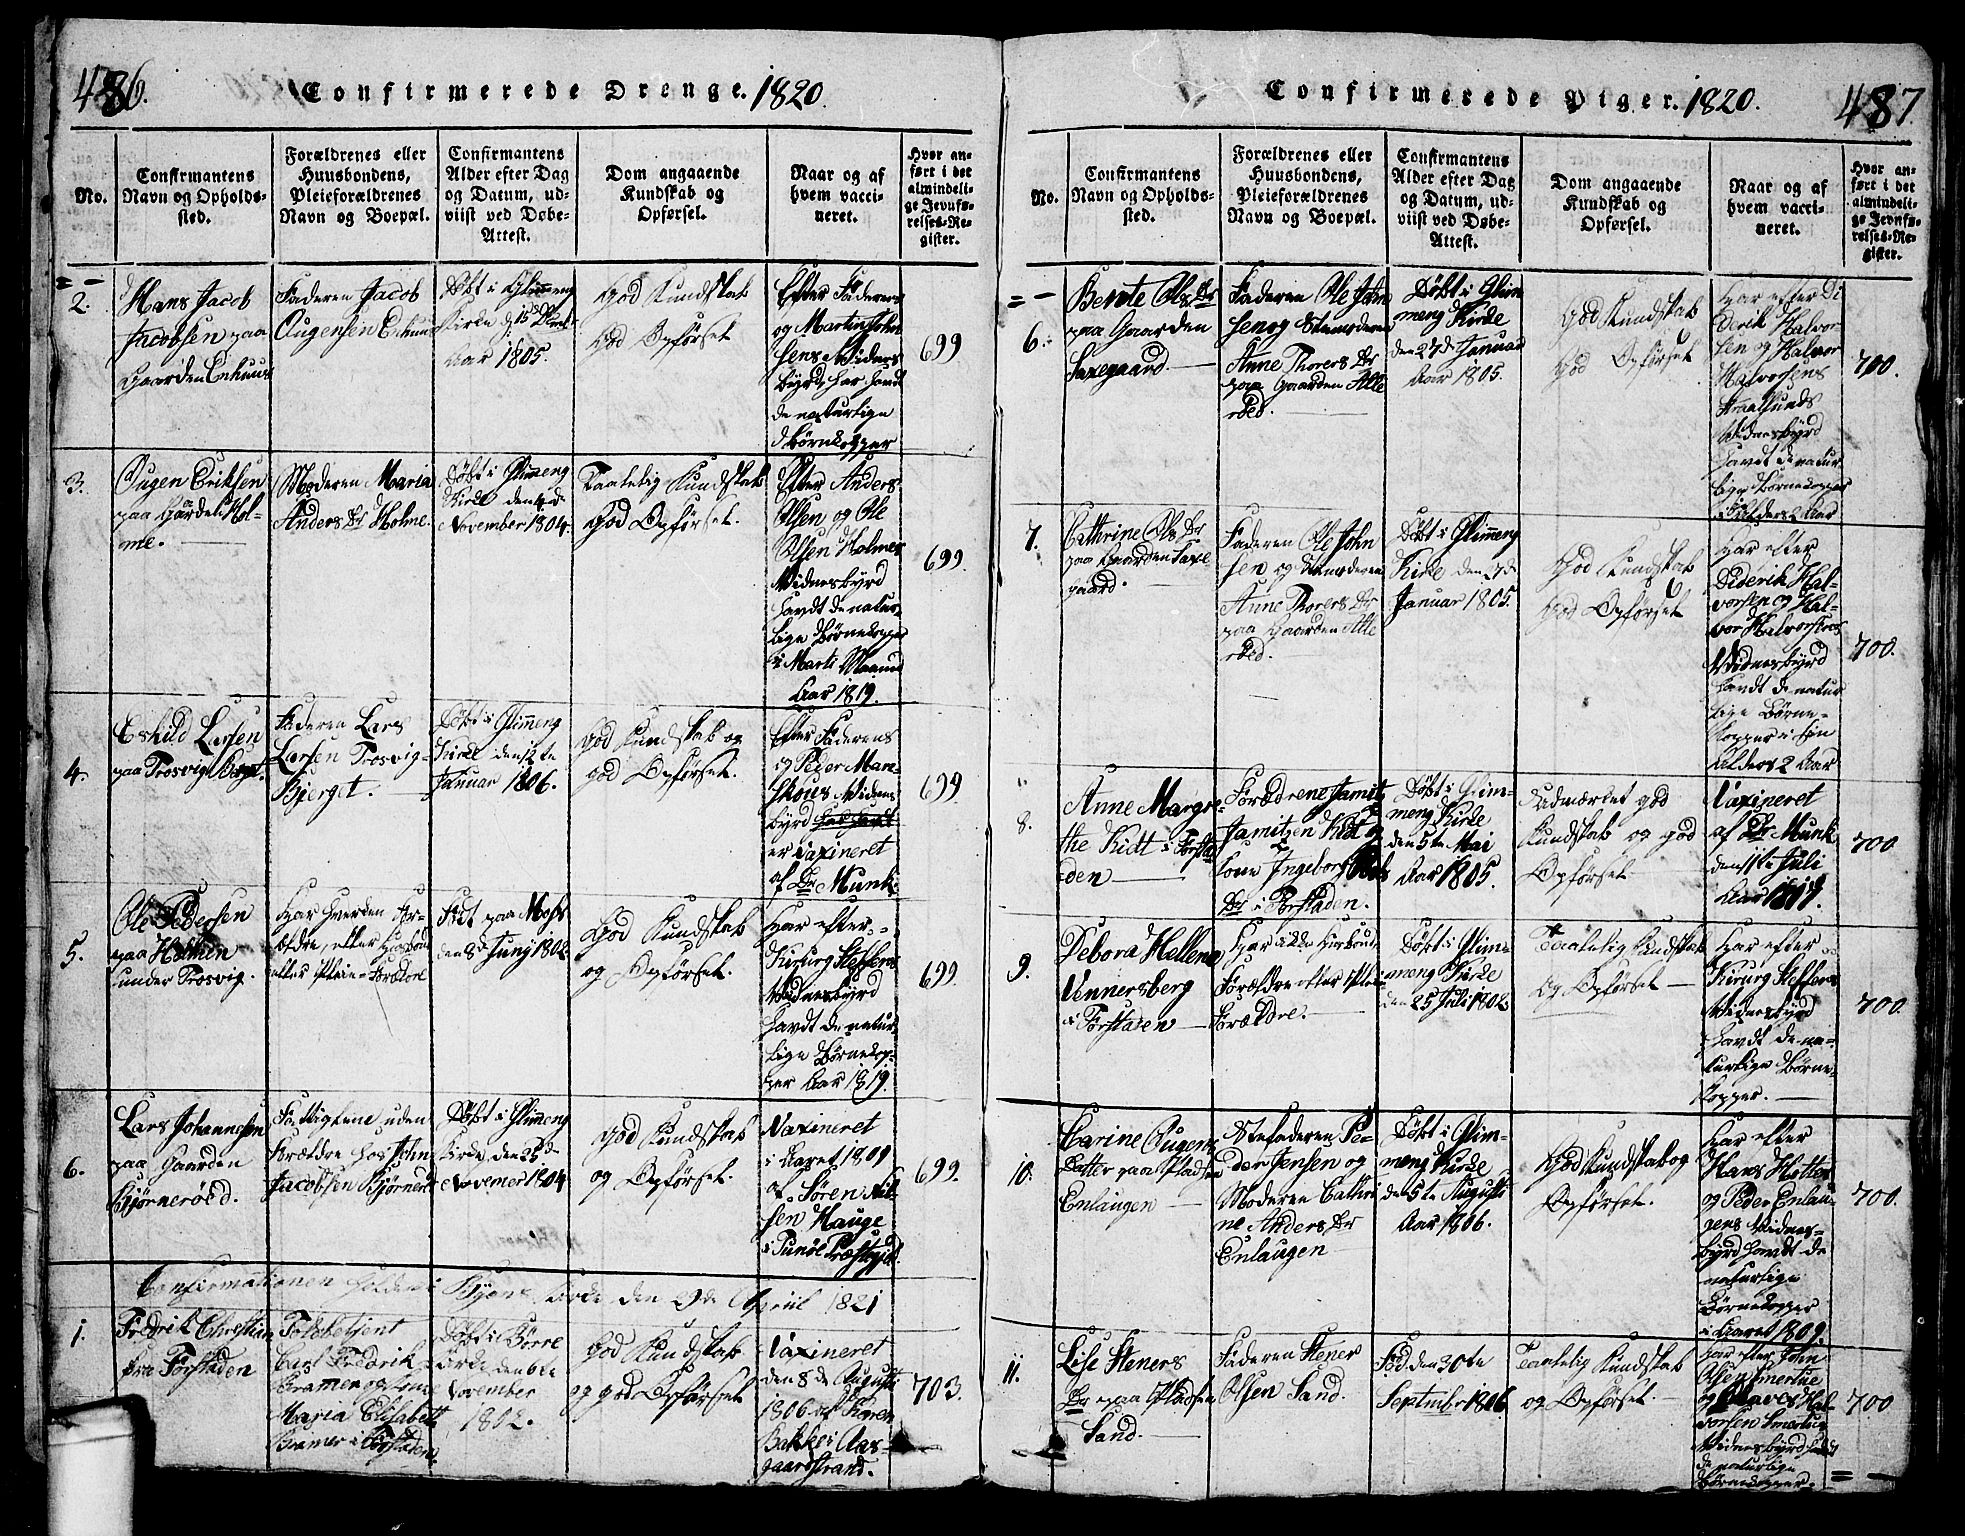 486.
Confirmerede Drenge. 1820.
No.
Confirmantens
Navn og Opholds-
sted.
Forældrenes eller
Huusbondens,
Pleieforældrenes
Navn og Boepæl.
Confirmantens
Alder efter Dag
og Datum, ud-
viist ved Døbe-
Attest.
Dom angaaende
Kundskab og
Opførsel.
Naar og af
hvem vacci-
neret.
Hvor an-
ført i det
almindeli-
ge Jevnfø-
relses-Re-
gister.
2.
Hans Jacob
Jacobsen paa
Gaarden Enhuus
Faderen Jacob
Augensen Enhuus
Døbt i Glimmeng
Kirke d. 15d
Aar 1805.
God Kundskab
God Opførsel
Efter Faderens
og Martin John
sens Vidnes
byrd, har havt
de naturlige
Børnekopper
699
3.
Augen Eriksen
paa Gaarden Hol-
me.
Moderen Maria
Anders Dr Holme.
Døbt i Glimmeng
Kirke den
November 1804.
Taalelig Kundskab
God Opførsel.
Efter Anders
Olsen og Ole
Olsen Holmes
Vidnesbyrd
havdt de natur
lige Børnekopper
i Marti Maaned
Aar 1819.
699.
4.
Eskild Larsen
paa Trosvig Bierget.
Faderen Lars
Larsen Trosvig-
Bjerget.
Døbt i Glimmeng
Kirke den 12te
Januar 1806.
God Kundskab og
god Opførsel.
Efter Faderens
og Peder Man-
skous Vidnes
byrd har havt
er vaxineret
af Dr Munk.
699.
5.
Ole Pedersen
paa Holmen
under Trosvig.
Har hverken For-
ældre, eller Huusbond
eller Pleie-Forældre
Født paa Moss
den 8de Juny 1802
God Kundskab
og Opførsel.
Har efter
Kirurg Steffens
Vidnesbyrd
havdt de natur-
lige Børnekop-
per Aar 1819.
699.
6.
Lars Johannesen
paa Gaarden
Bjørnerøed.
Fattiglene uden
Forældre hos John
Jacobsen Bjørnerød
Døbt i Glimmeng
Kirke, den 25d
November 1804
God Kundskab
og Opførsel.
Vaxineret
i Aaret 1809
af Søren Nil-
sen Hauge
i Tunøe Præstegjeld.
699.
Confirmationen holden i Byens Kirke den 9de Apriil 1821
1.
Fredrik Christian
fra Forstaden
Toldbetjent
Carl Fredrik
Bramer og Kone
Maria Elisabeth
Bramer i Forstaden.
Døbt i Borre
Kirke den 6te
November
1802.
God Kundskab
og god Opførsel
Vaxineret
den 8de Augusti
1806 af Søren
Bakke i Aas-
gaardstrand.
703.
487
Confirmerede Piger. 1820.
No.
Confirmantens
Navn og Opholds-
sted.
Forældrenes eller
Huusbondens,
Pleieforældrenes
Navn og Boepæl.
Confirmantens
Alder efter Dag
og Datum, ud-
viist ved Døbe-
Attest.
Dom angaaende
Kundskab og
Opførsel.
Naar og af
hvem vacci-
neret.
Hvor an-
ført i det
almindeli-
ge Jevnfø-
relses-Re-
gister.
6.
Bernte Ols Dr
paa Gaarden
Saxegaard.
Faderen Ole John
sen og Stemoderen
Anne Thorers Dr
paa Gaarden Alle
røed.
Døbt i Glim
meng Kirke
den 27de Januar
Aar 1805.
God Kundskab
God Opførsel
Har efter Di
derik Halvor
sen og Halvor
Halvorsens
Vidnesbyrd
havdt de natur
lige Børnekopper
i Alders 2 Aar
700.
7.
Cathrine Ols Dr
paa Gaarden Saxe-
gaard.
Faderen Ole John
sen og Stemoderen
Anne Thorers Dr
paa Gaarden Alle
røed.
Døbt i Glimmeng
Kirke den 27de
Januar 1805.
God Kundskab
God Opførsel
Har efter
Diderik Hal-
vorsen og Hal-
vor Halvorsens
Vidnesbyrd
havdt de natur
lige Børne-
kopper i sin
Alders 2 Aar
700.
8.
Anne Margre-
the Kidt i Forsta
den
Forældrene Jamit
Jamitsen Kidt og
Kone Ingeborg Ols
Dr i Forstaden.
Døbt i Glim-
meng Kirke
den 5te Mai
Aar 1805.
Udmærket god
Kundskab og god
Opførsel
Vaxineret
af Dr Munk
den 11te Juli
Aar 1819.
700
9.
Debora Hellena
Vennersberg
i Forstaden
Har ikke Huusbond
Forældre eller Pleie
Forældre.
Døbt i Glim-
meng Kirke
den 25 Juli 1802.
Taalelig Kundskab
Og Opførsel
Har efter
Kirurg Steffens
Vidnesbyrd
havdt de na-
turlige Børne-
kopper.
700.
10.
Carine Augens
Datter paa Pladsen
Enlaugen
Stefaderen Pe-
der Jensen og
Moderen Cathri
ne Anders Dr
Enlaugen
Døbt i Glim-
meng Kirke
den 5te Augusti
Aar 1806.
God Kundskab og
Opførsel.
Har efter
Hans Holter
og Peder Enlau-
gens Vidnes-
byrd havdt de
naturlige
Børnekopper
i Aaret 1809.
700.
11.
Lise Steners
Dr paa Pladsen
Sand.
Faderen Stener
Olsen Sand.
Fød. den 30te
September 1806
Taalelig Kundskab
og Opførsel
Har efter John
Olsen Smertue
og Olaves Hal-
vorsen Smertue
Vidnesbyrd havdt
de naturlige
Børnekopper.
700